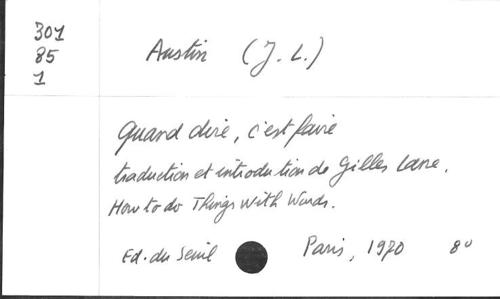 301
85
1
Austin (J. L.)
Quand dire, c'est faire
traduction et introduction de Gilles Lane.
How to do Things With Words.
Ed. du Seuil Paris, 1970 8°